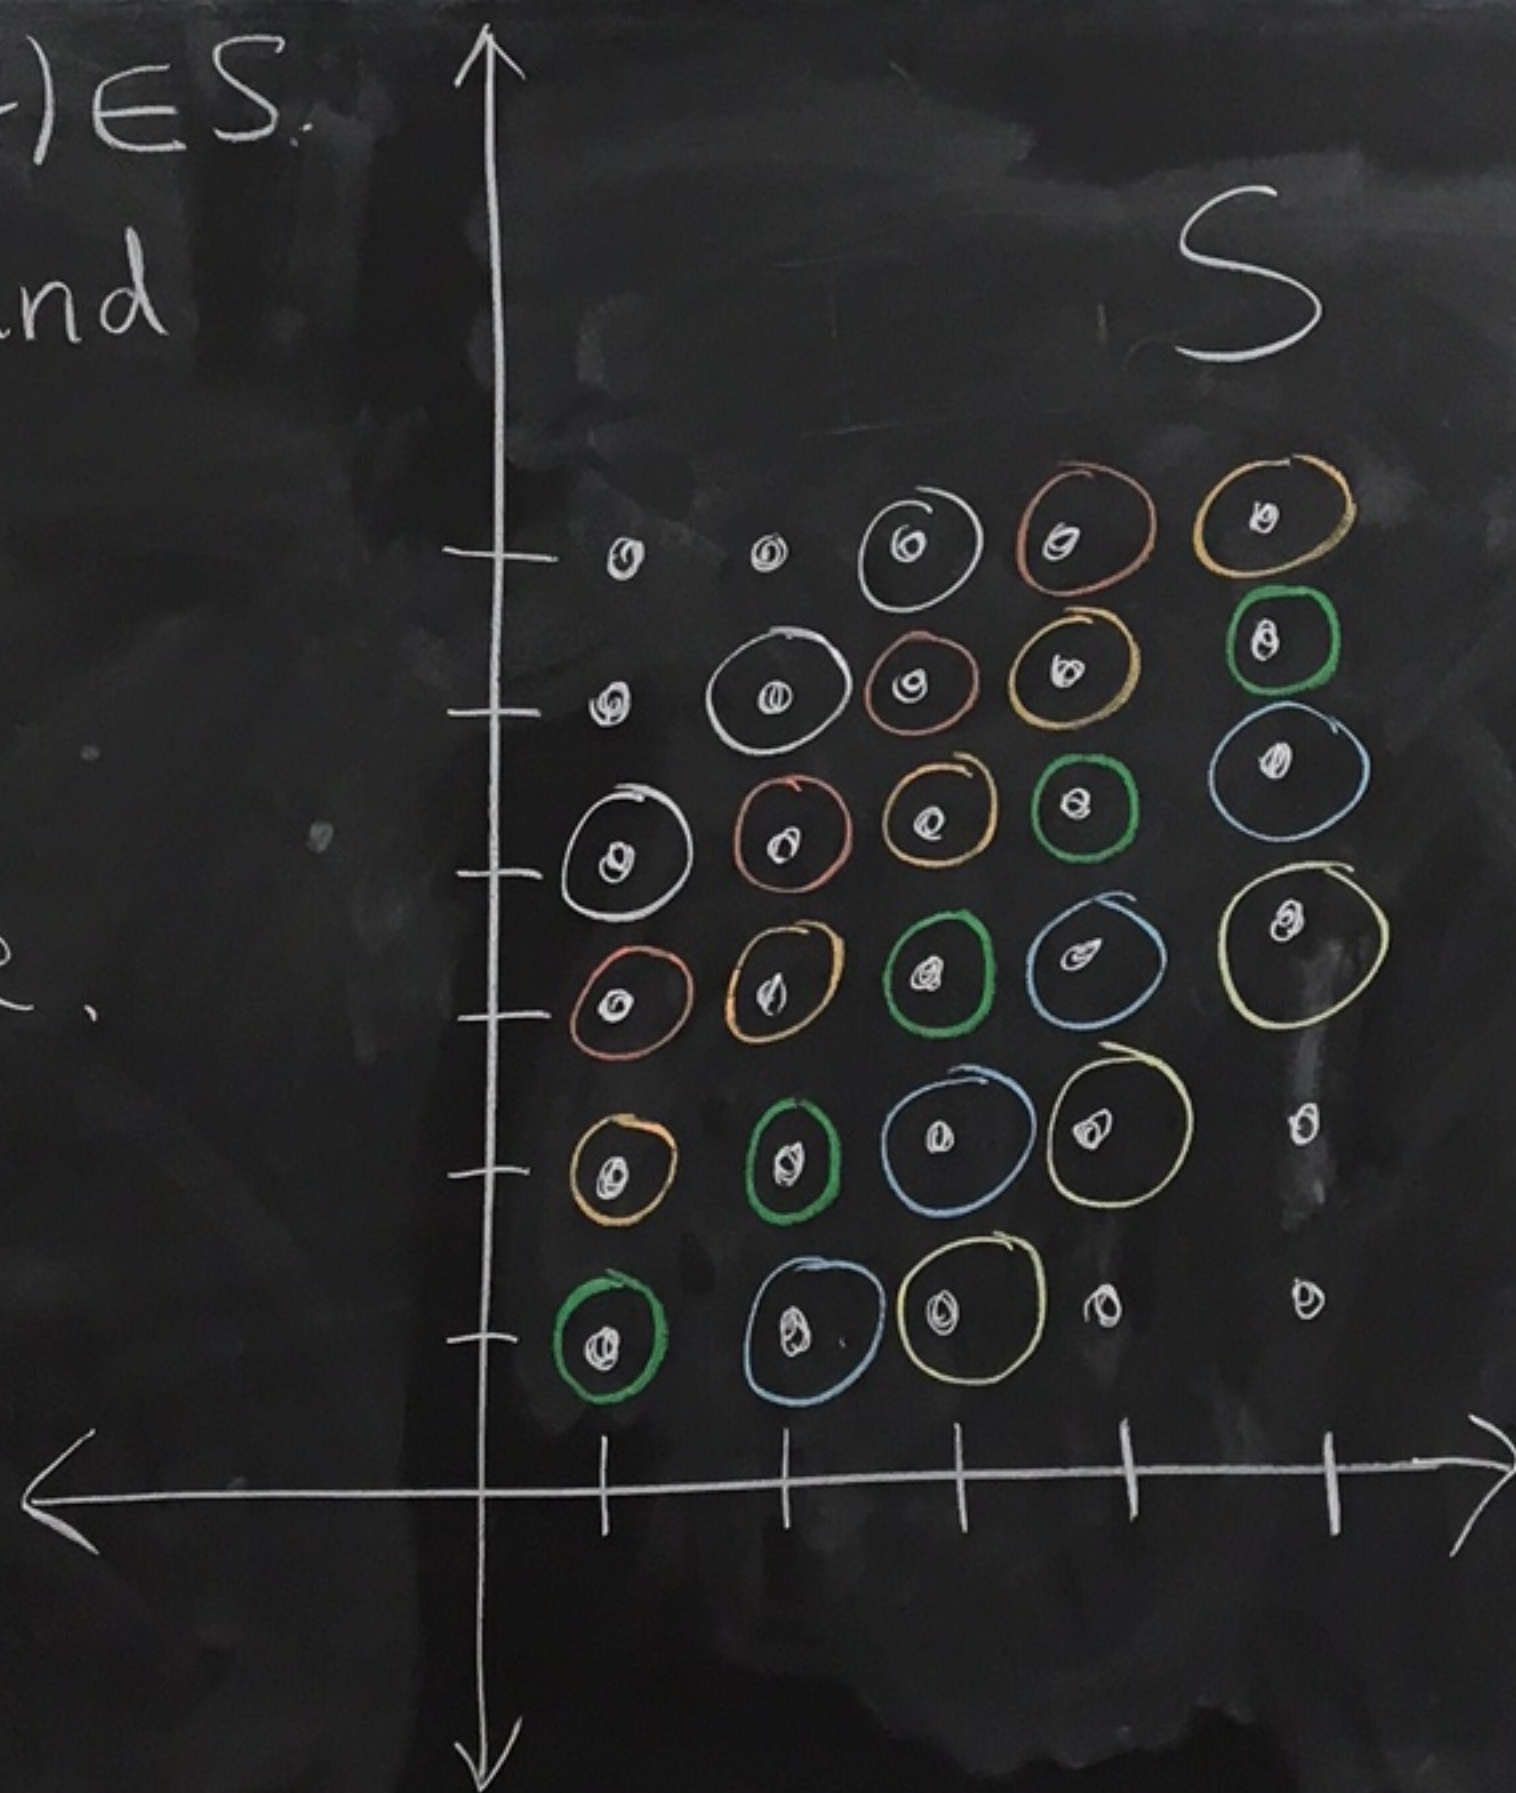 )∈S.
and
S